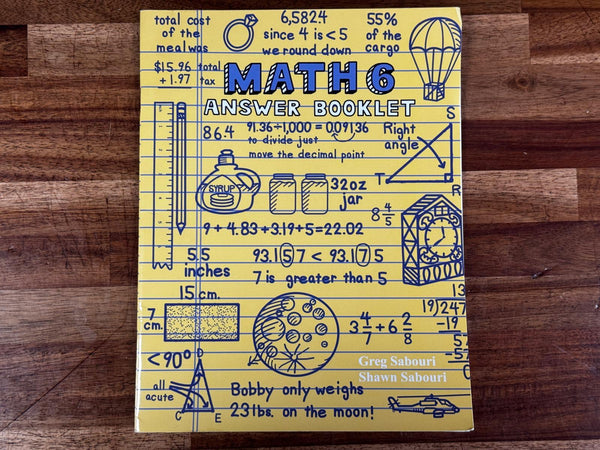 total cost
of the
meal was
$15.96 total
+ 1.97 tax
6,5824
since 4 is < 5
we round down
55%
of the
cargo
MATH 6
ANSWER BOOKLET
86.4
91.36÷1,000 = 0.09136
to divide just
move the decimal point
Right
angle
S
T
R
SYRUP
32oz
jar
8 4/5
9 + 4.83 + 3.19 + 5 = 22.02
5.5
inches
93.157 < 93.175
7 is greater than 5
15 cm.
7
cm.
3 4/7 + 6 2/8
13
19)247
-19
57
-57
0
<90°
all
acute
D
C
E
Greg Sabouri
Shawn Sabouri
Bobby only weighs
23 lbs. on the moon!